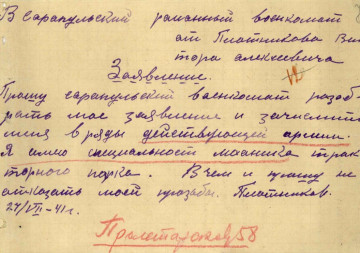 В сарапульский районный военкомат
от Плотникова Вик
тора алексеевича
Заявление.
Прошу сарапульский военкомат разоб
рать мое заявление и зачислить
меня в ряды действующей армии.
Я имею специальность механика трак
торного парка. В чем и прошу не
отказать моей прозьбы. Плотников.
24/VII-41г.
Пролетарская 58